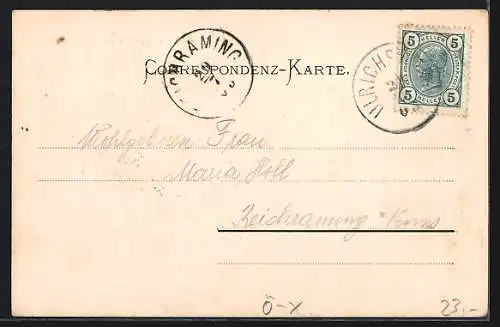 RAMING
CORRESPONDENZ-KARTE.
ULRICHS
5 HELLER 5
5 HELLER 5
Wohlgeboren Frau
Maria Holl
Reichraming
Ö-X
23,-